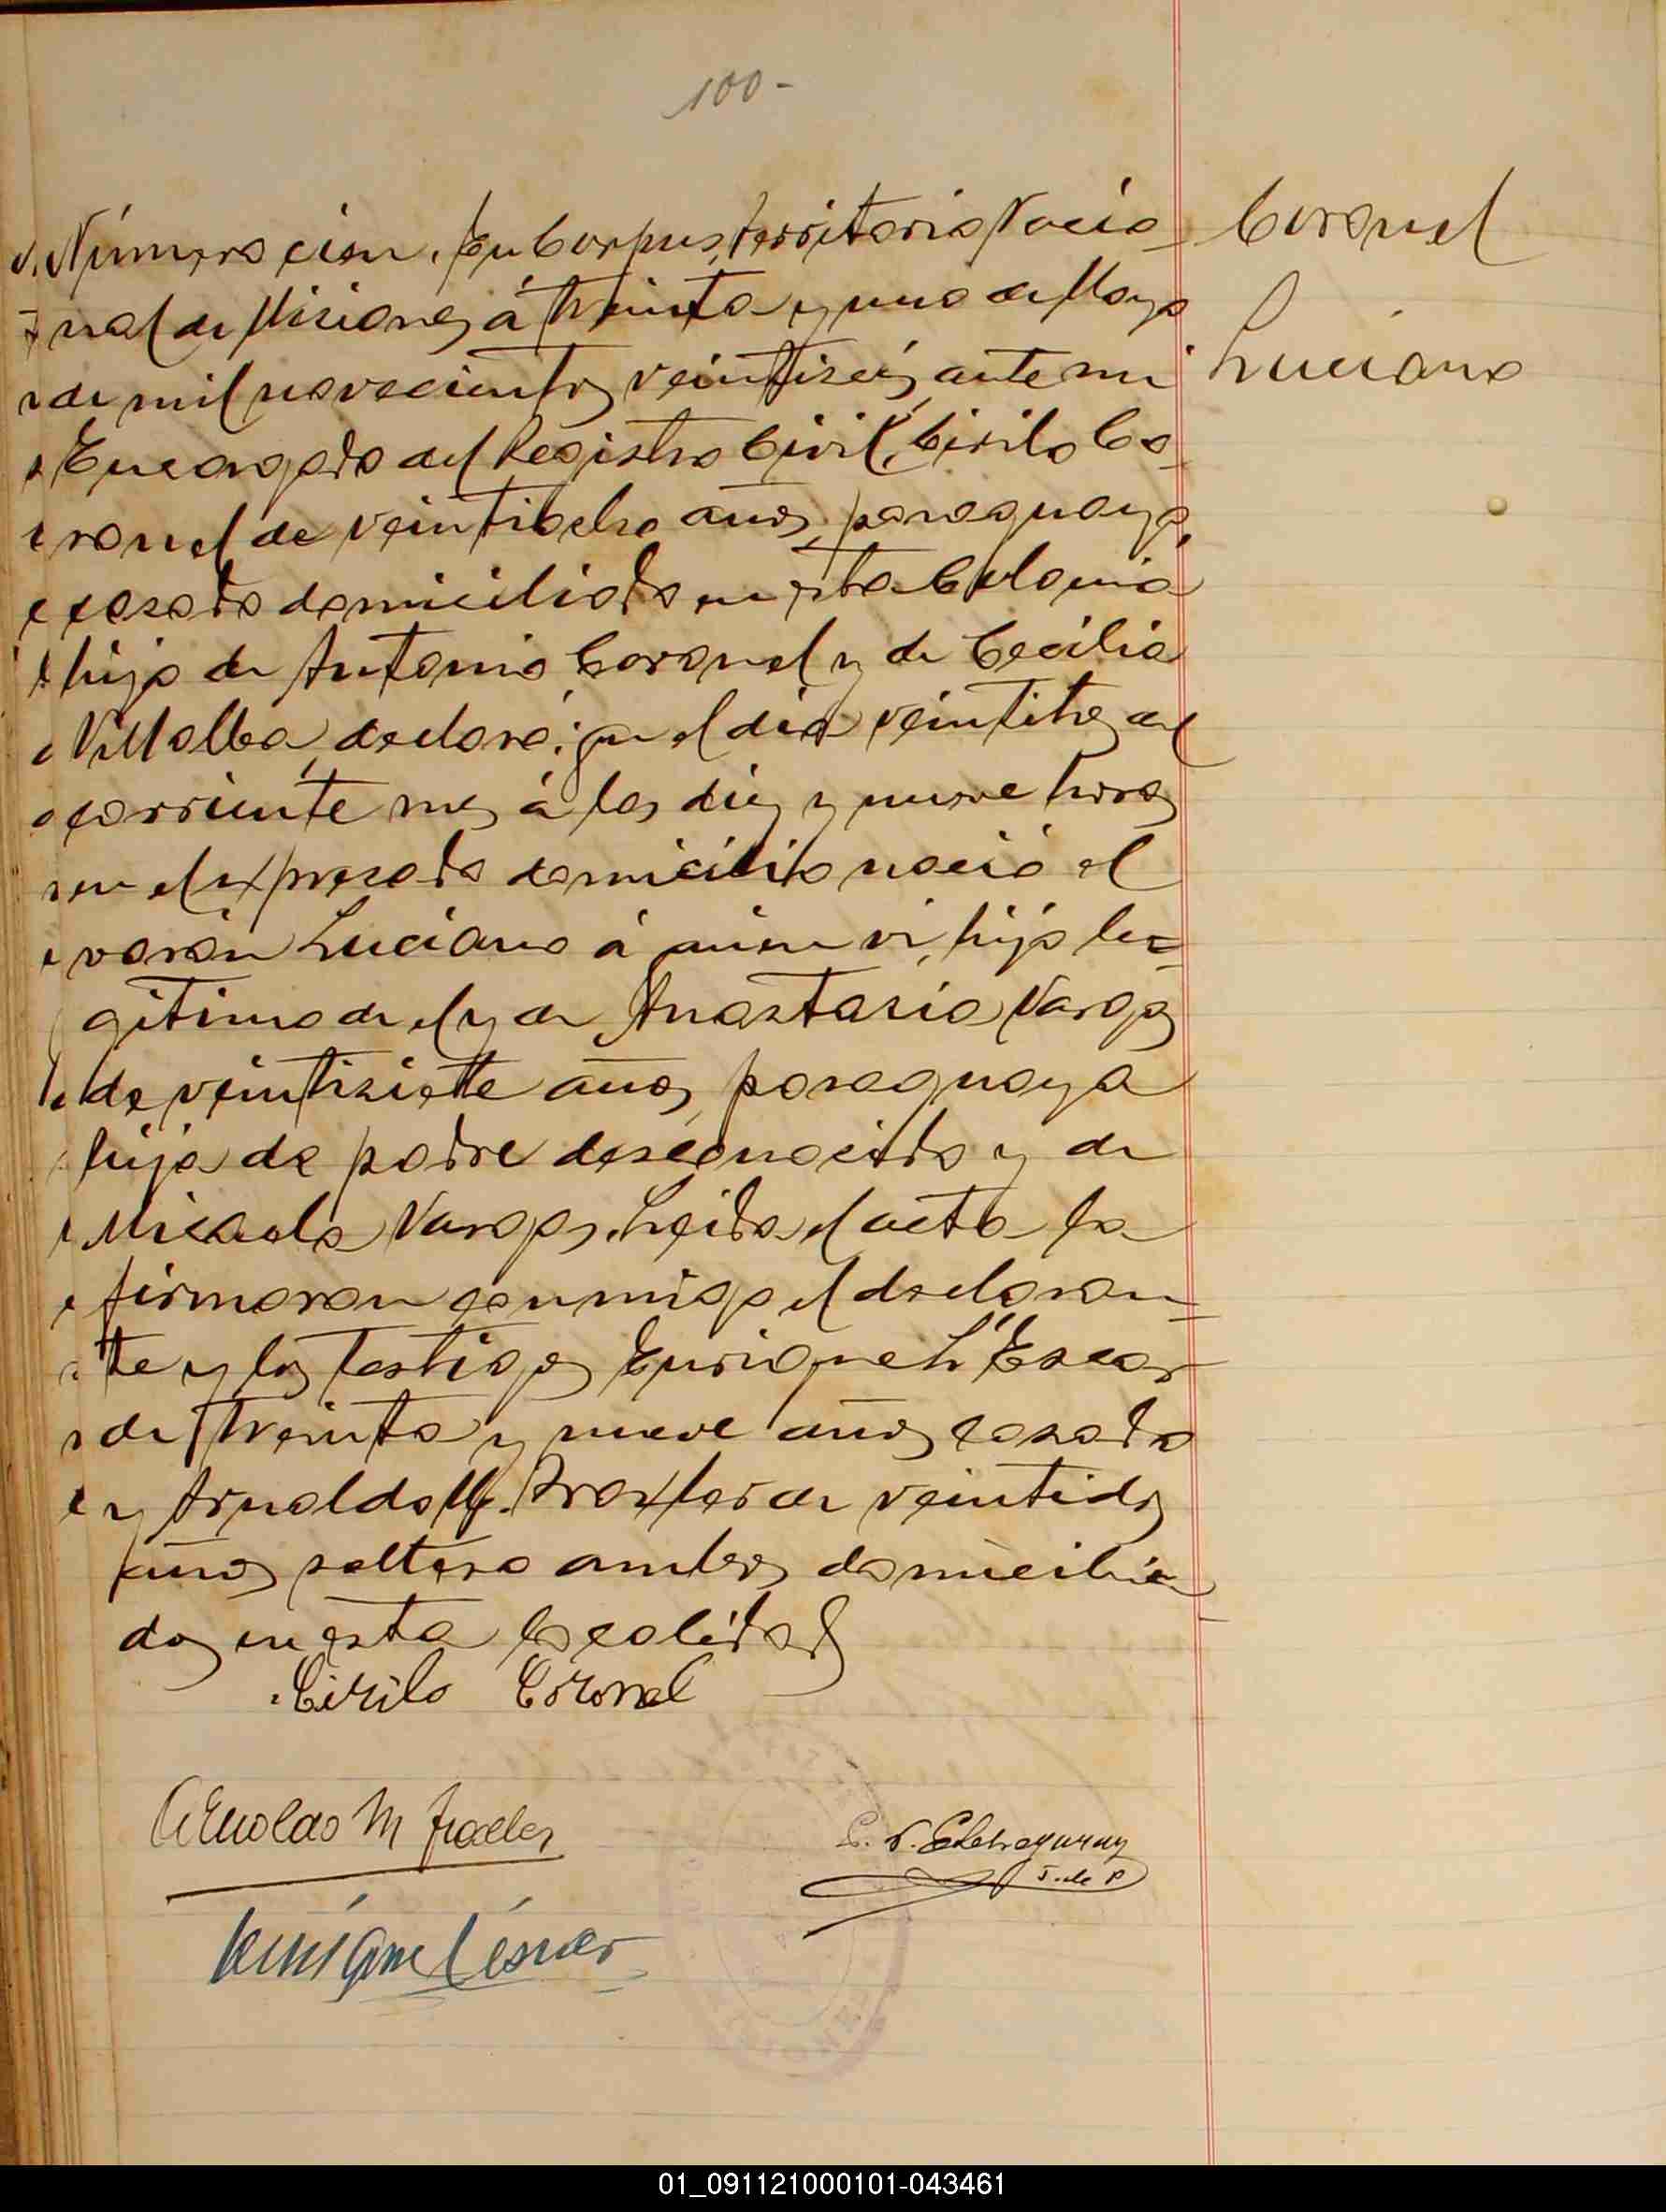 100-
Número cien. En Corpus, Territorio Nacio-
Coronel
nal de Misiones á treinta y uno de Mayo
Luciano
de mil novecientos veintiseis, ante mi
Encargado del Registro Civil, Cirilo Co-
ronel de veintiocho años, paraguayo,
casado domiciliado en esta Colonia
hijo de Antonio Coronel y de Cecilia
Villalba, declaró: que el dia veintitres del
corriente mes á las diez y nueve horas
en el expresado domicilio nació el
varón Luciano á quien vi, hijo le-
gitimo de el y de Anastacia Vargas
de veintisiete años, paraguaya
hija de padre desconocido y de
Micaela Vargas. Leida el acta la
firmaron conmigo el declaran-
te y los testigos Enrique L. Escar
de treinta y nueve años casado
y Arnaldo M. de veintidos
años soltero ambos domicilia
dos en esta localidad
Cirilo Coronel
Arnoldo M
Echegaray
J. de P
Enrique
01_091121000101-043461